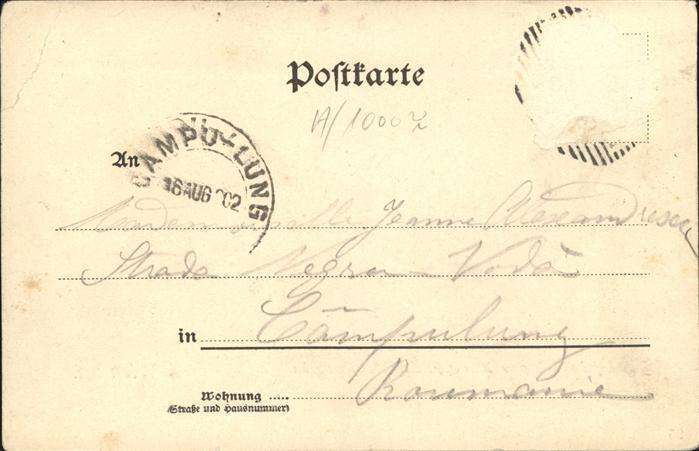 Postkarte
A/1000 Z
An
CAMPU-LUNG
16 AUG 902
Mademoiselle Jeanne Alexandrescu
Strada Negru Vodă
in Câmpulung
Wohnung
(Straße und Hausnummer)
Roumanie